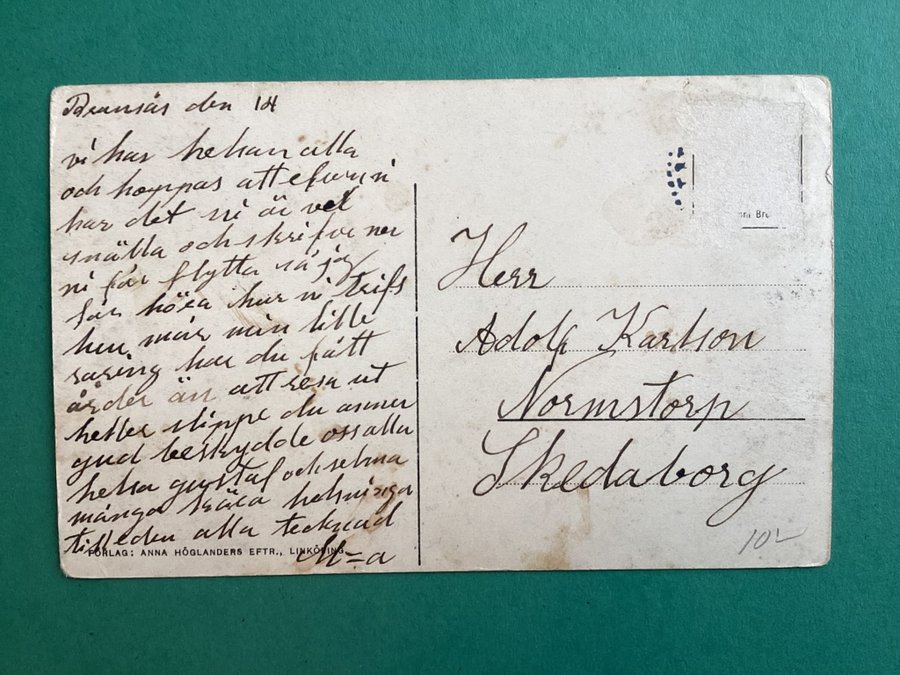 den 14
vi har helsan alla
och hoppas att efven ni
har det ni är vel
snälla och skrifver när
ni får flytta så jag
får höra hur ni trifs
hur mår min lille
raring har du fått
årder än att resa ut
heller slippe du
gud beskydde oss alla
helsa gustaf och selma
många kära helsninga
till eder alla tecknad
M=a
FÖRLAG: ANNA HÖGLANDERS EFTR., LINKÖPING.
Herr
Adolf Karlson
Normstorp
Skedaborg
10:-